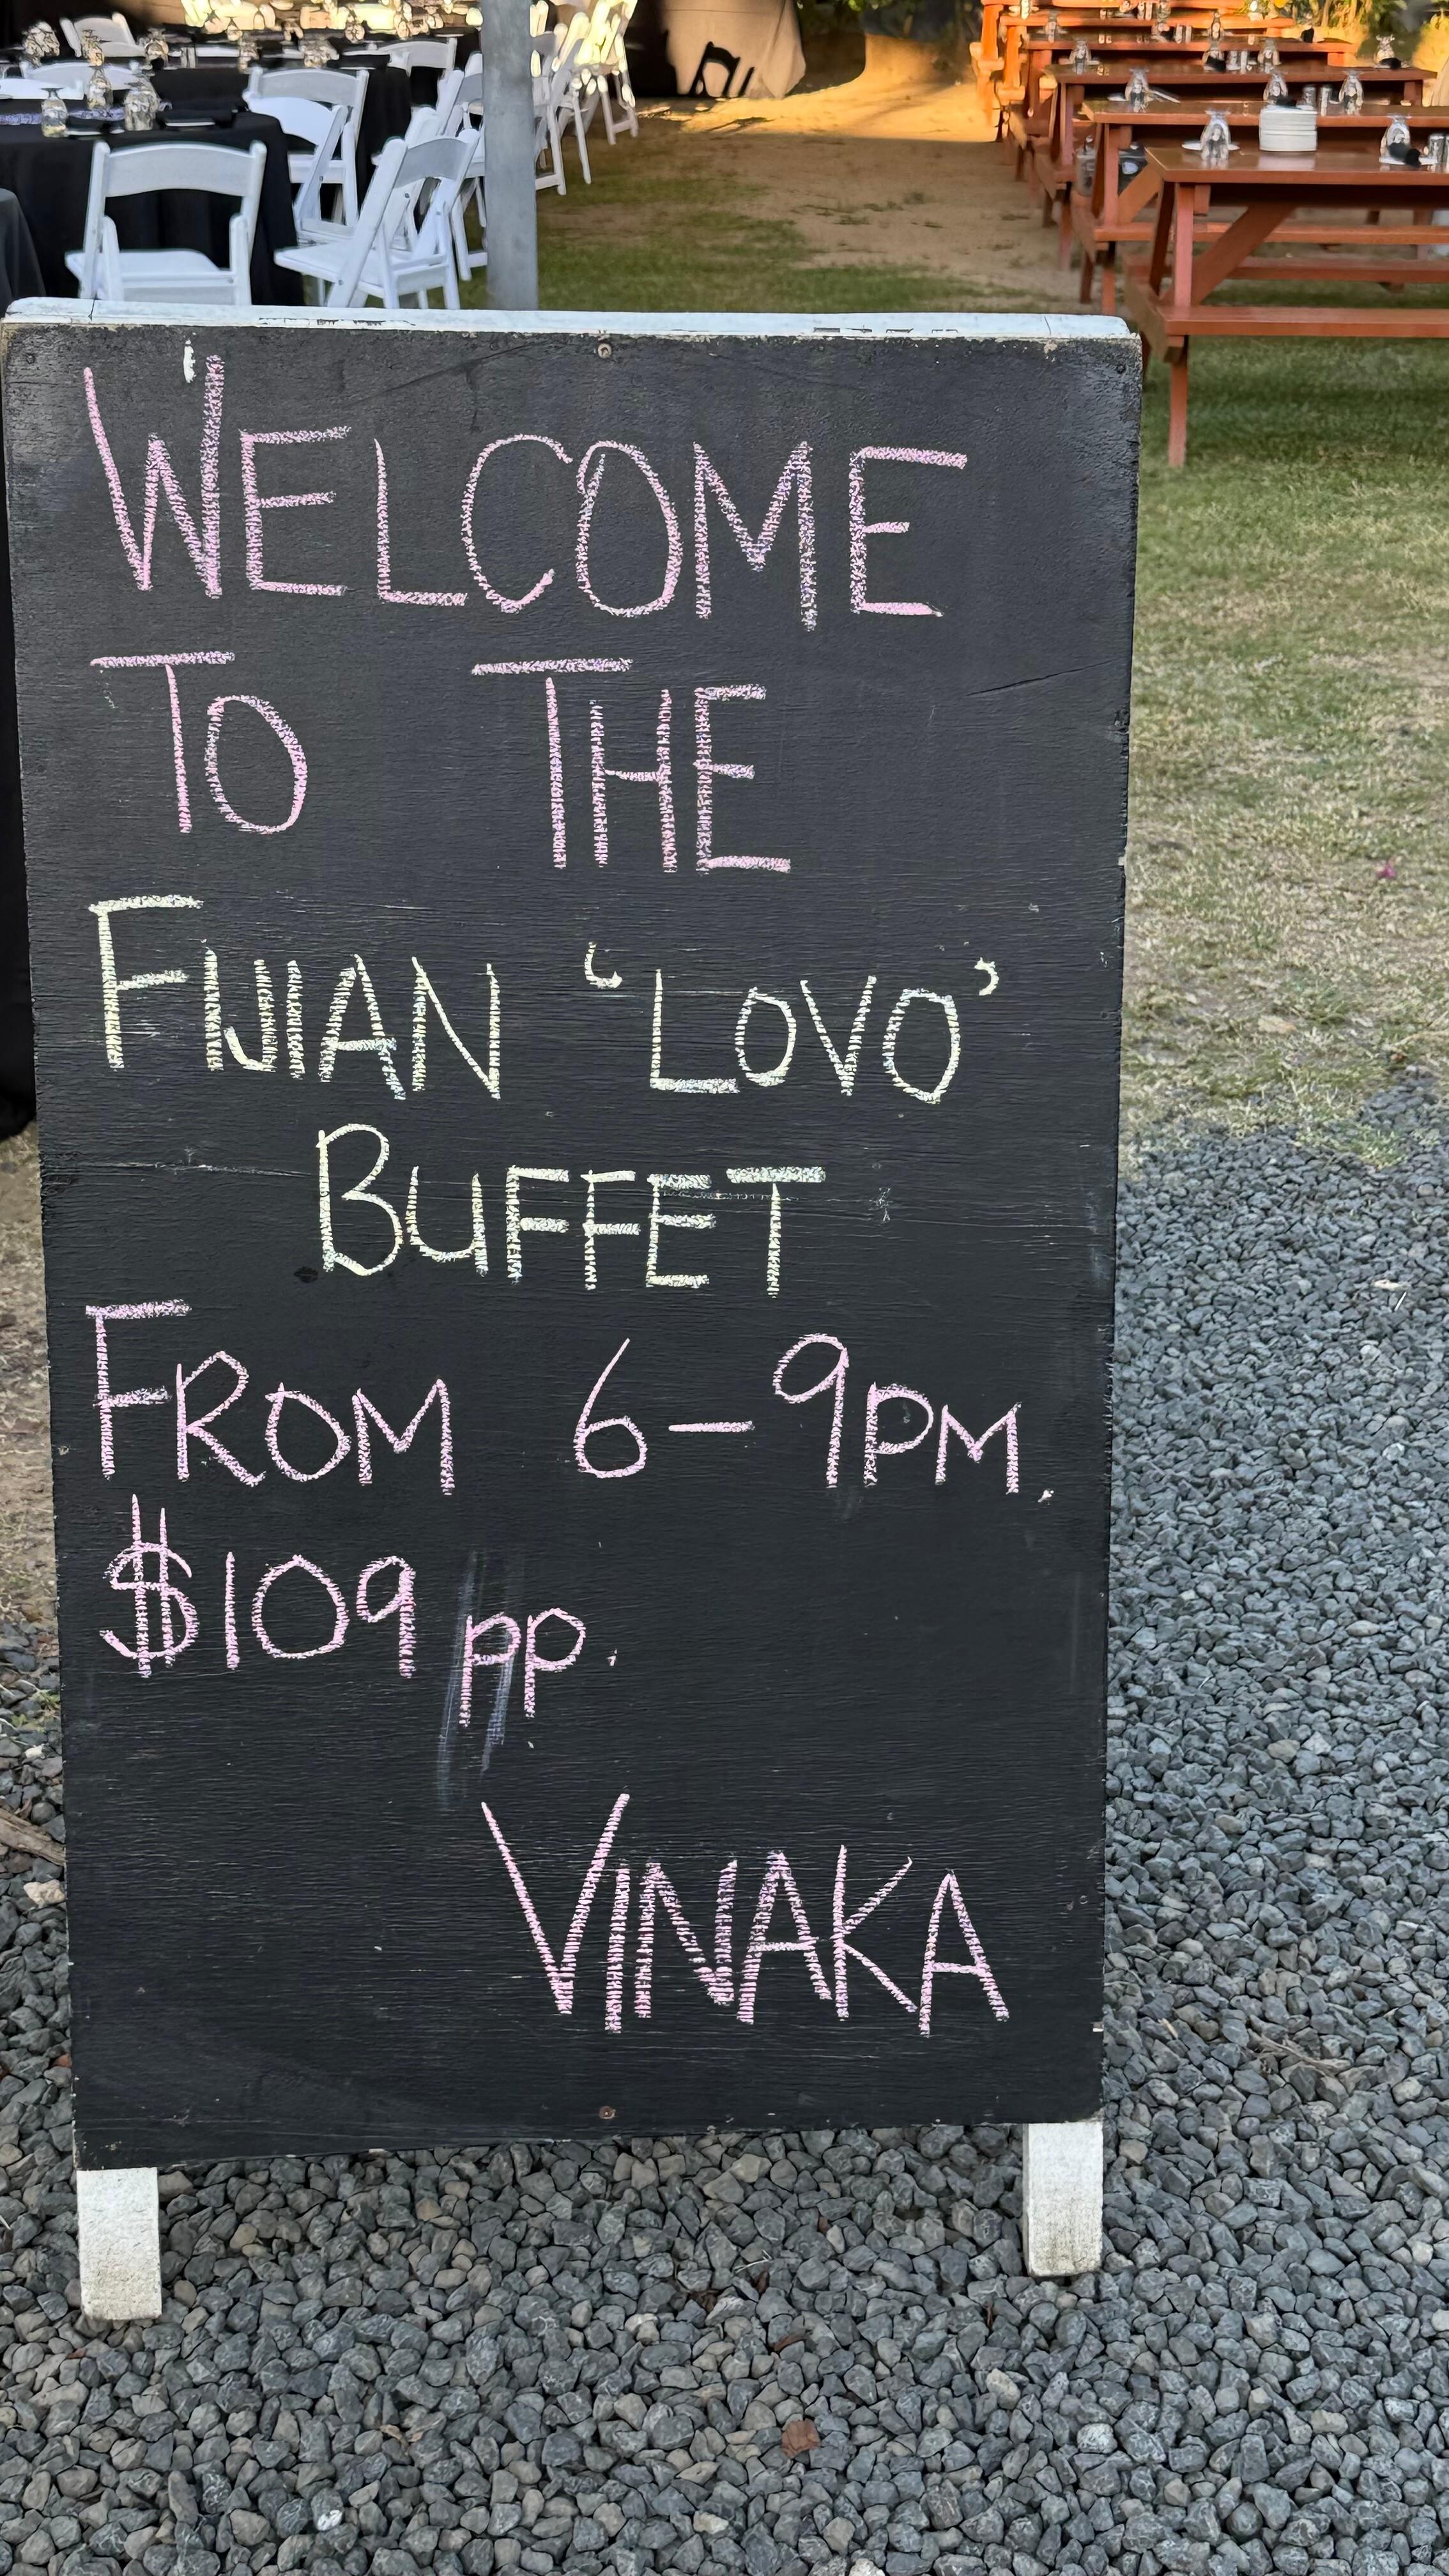 WELCOME
TO THE
FIJIAN 'LOVO'
BUFFET
FROM 6-9PM.
$109 pp.
VINAKA